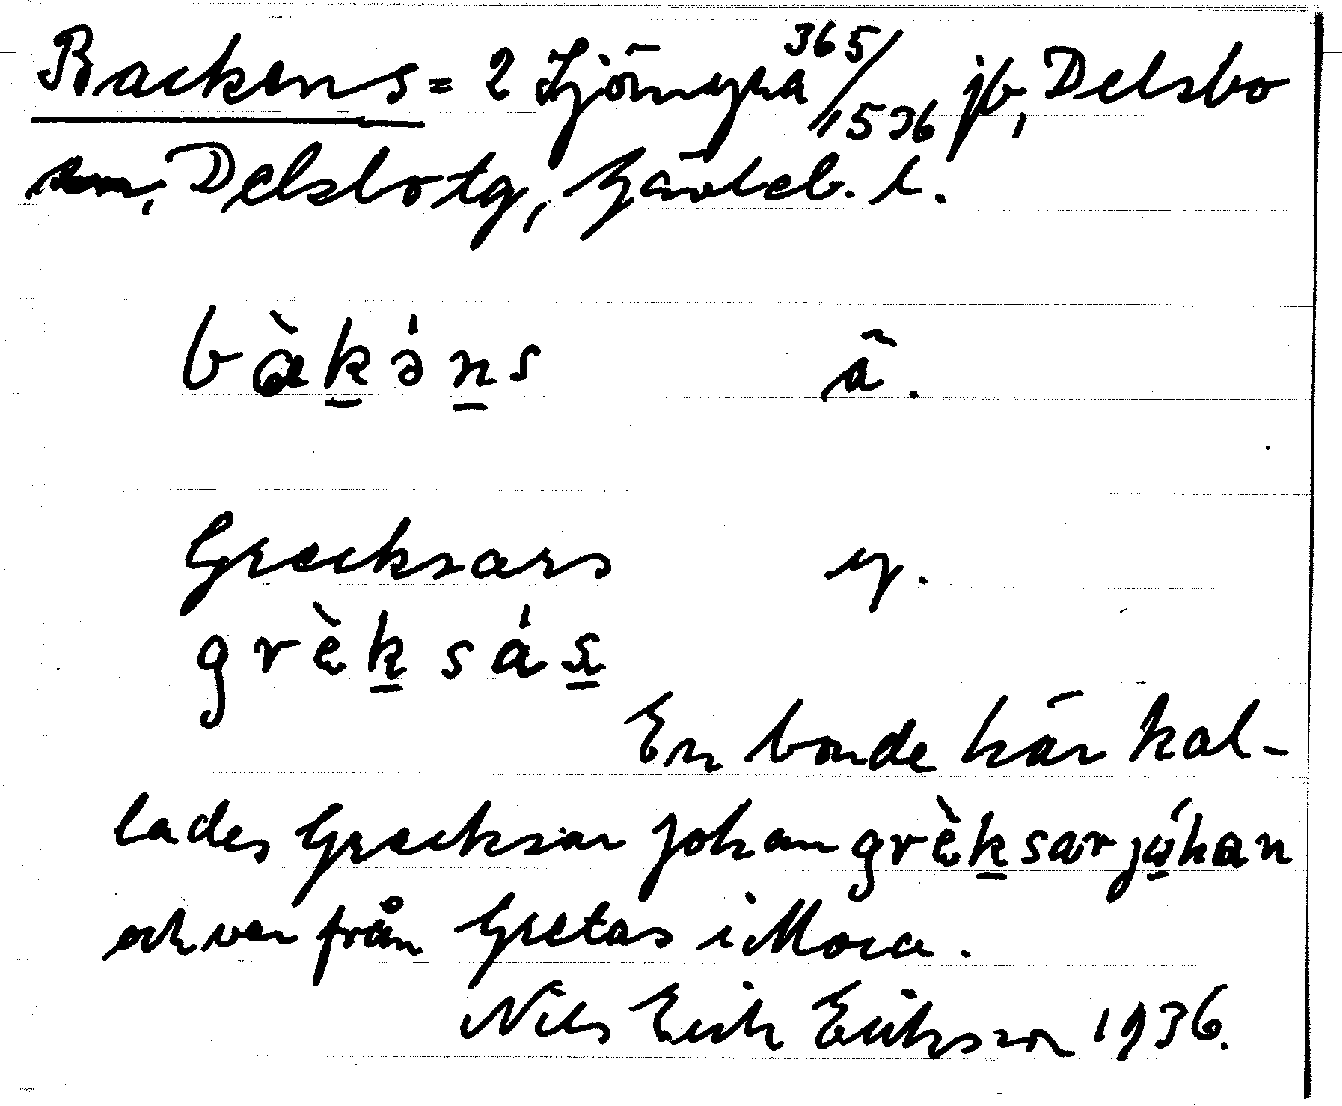 Backens = 2 Tjörnyra 365/1536 jb, Delsbo
sn, Delsbo tg, Gävleb. l.
bàkə́ns ä̂.
Grecksars y.
grèksás
En bonde här kal-
lades Grecksar Johan grèksar jóhan
och var från Gretas i Mora.
Nils Erik Eriksson 1936.